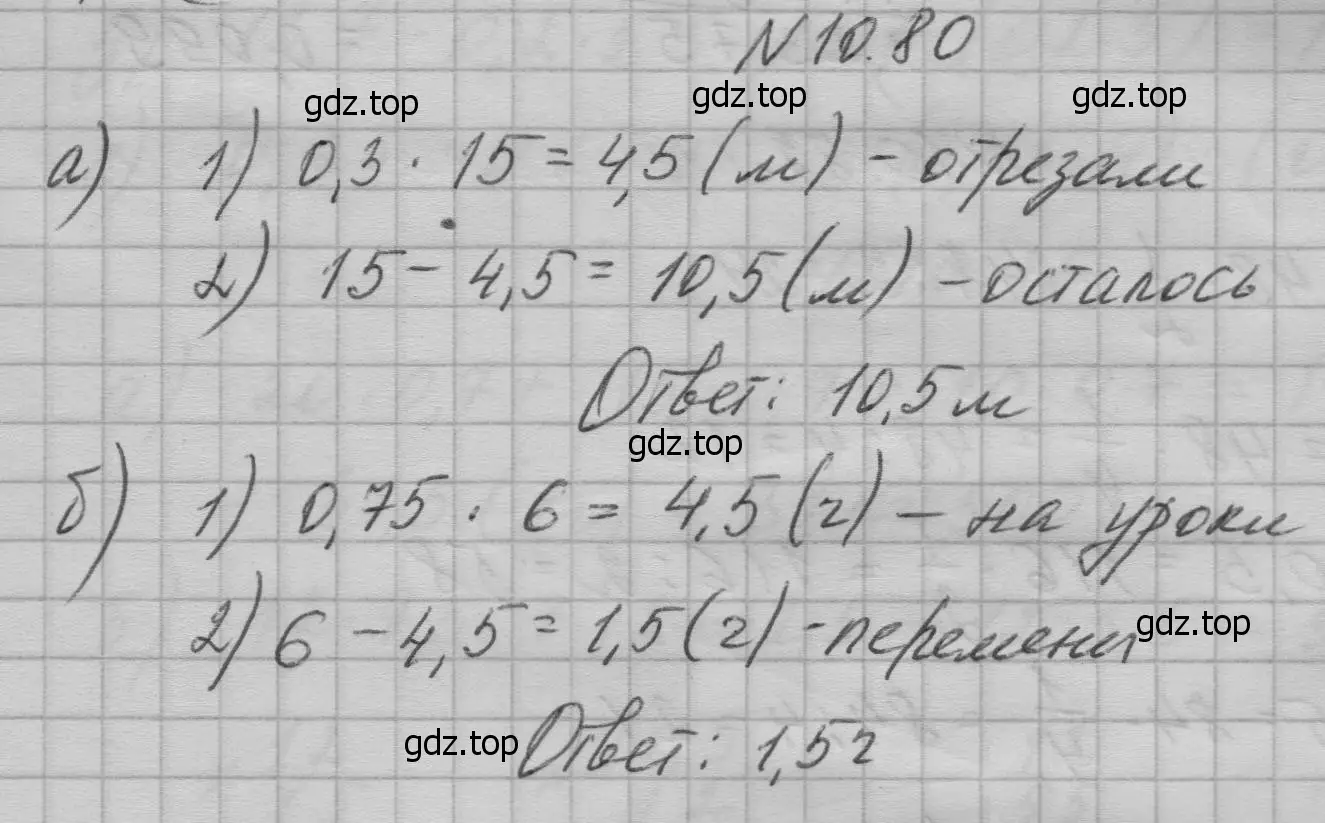 N 10.80
gdz.top gdz.top gdz.top
а) 1) 0,3 · 15 = 4,5 (м) - отрезали
2) 15 - 4,5 = 10,5 (м) - осталось
Ответ: 10,5 м
gdz.top
б) 1) 0,75 · 6 = 4,5 (г) - на уроки
2) 6 - 4,5 = 1,5 (г) - перемени
gdz.top
gdz.top Ответ: 1,5 г